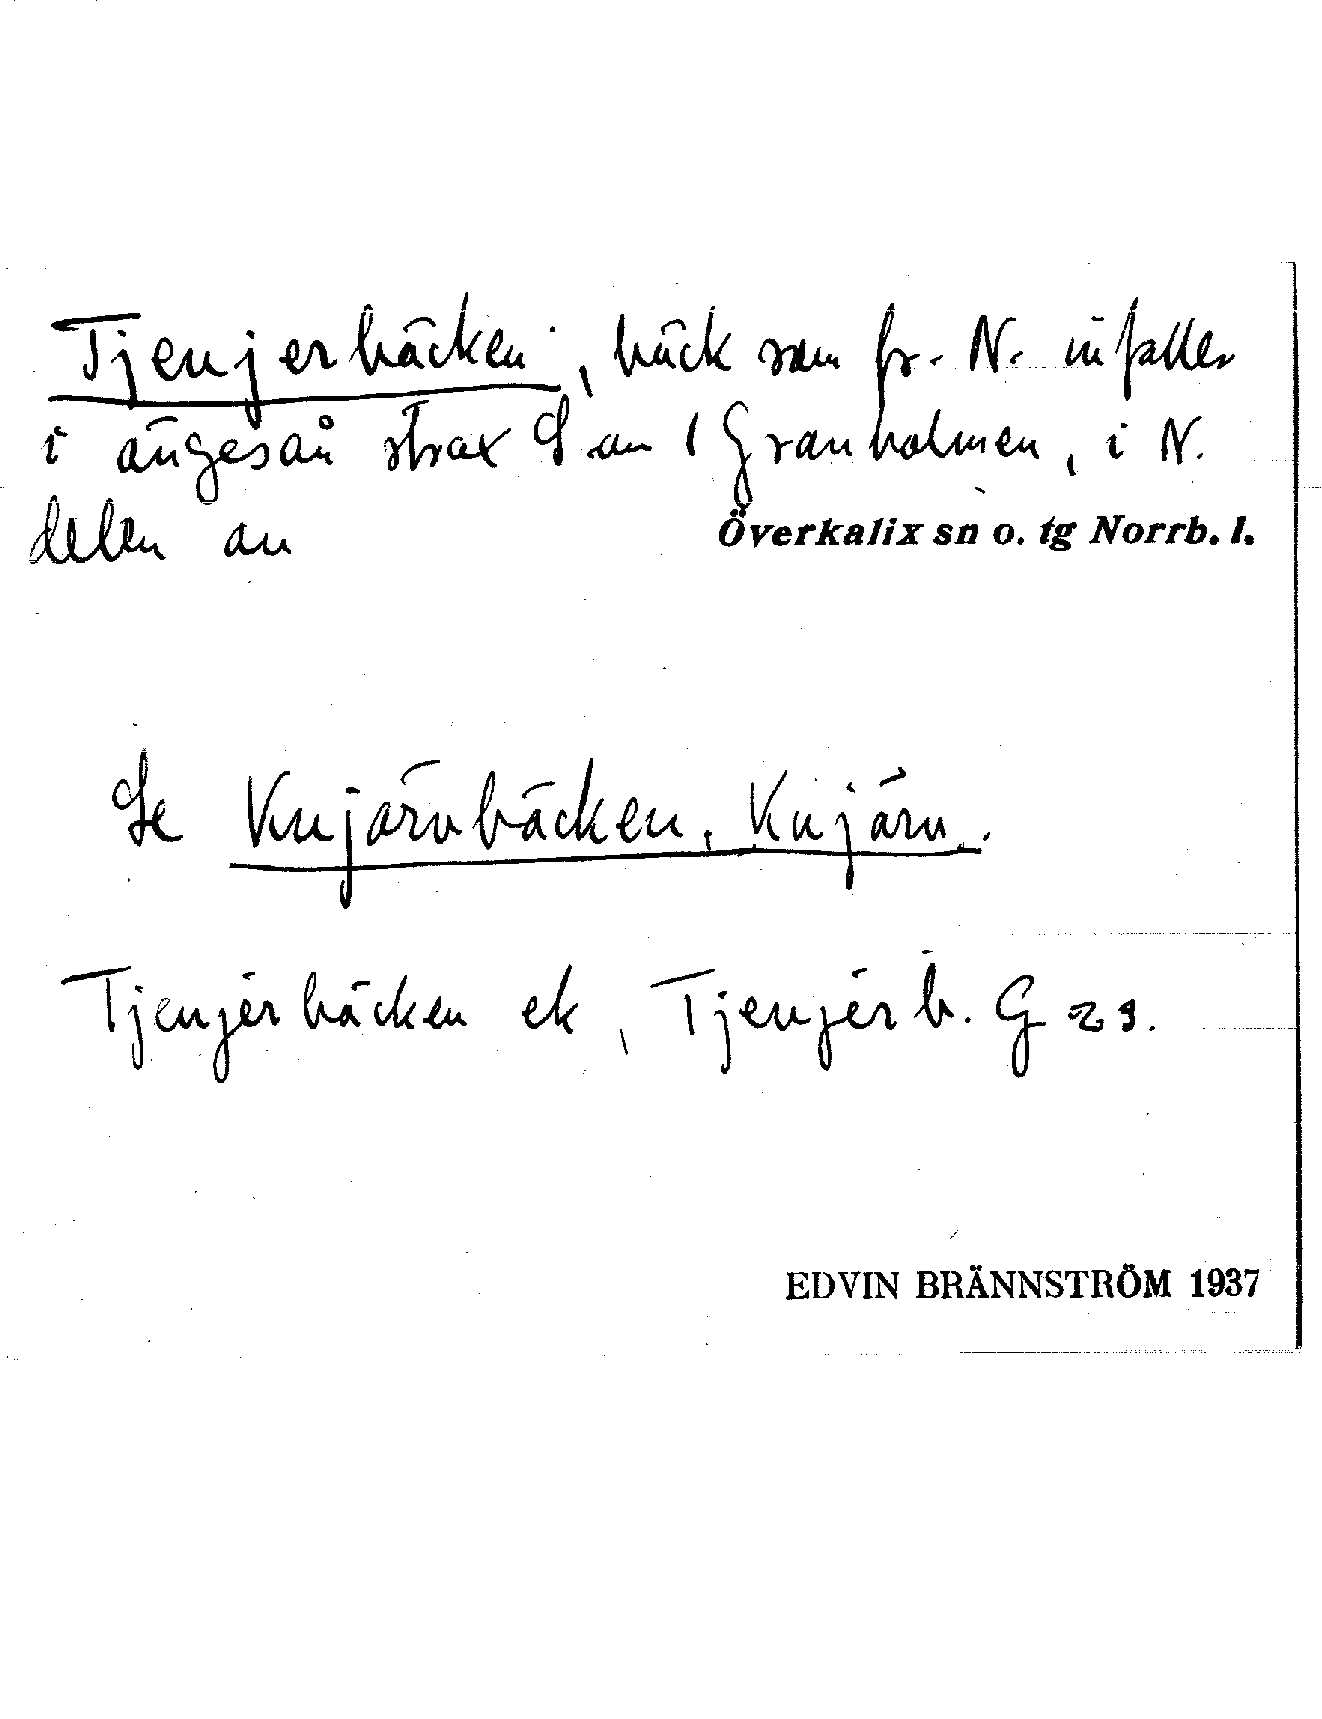 Tjeujerbäcken, bäck som fr. N. infaller
i ängesån strax S om Granholmen, i N.
delen av Överkalix sn o. tg Norrb. l.
Se Kujärvbäcken, Kujärv.
Tjeujerbäcken ek, Tjeujerb. G 23.
EDVIN BRÄNNSTRÖM 1937